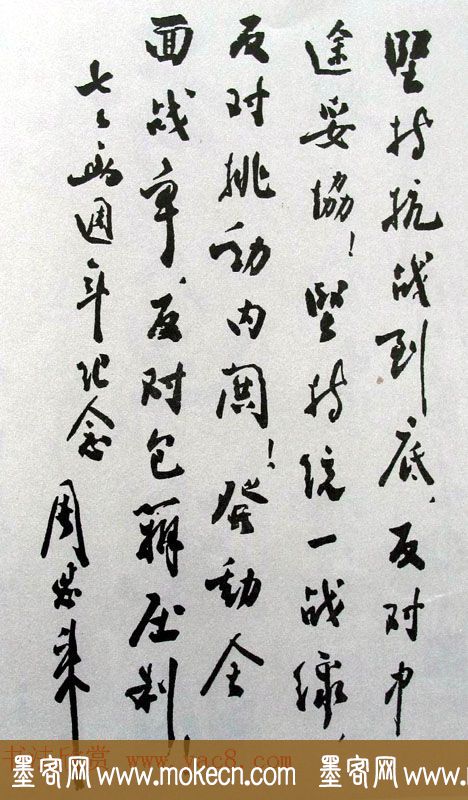 坚持抗战到底，反对中
途妥協！坚持统一战線，
反对挑动内閧！發動全
面战争，反对包办压制！
七七両週年纪念
周恩来
书法欣赏 www.yac8.com
墨客网 www.mokecn.com 墨客网 www.mokecn.com